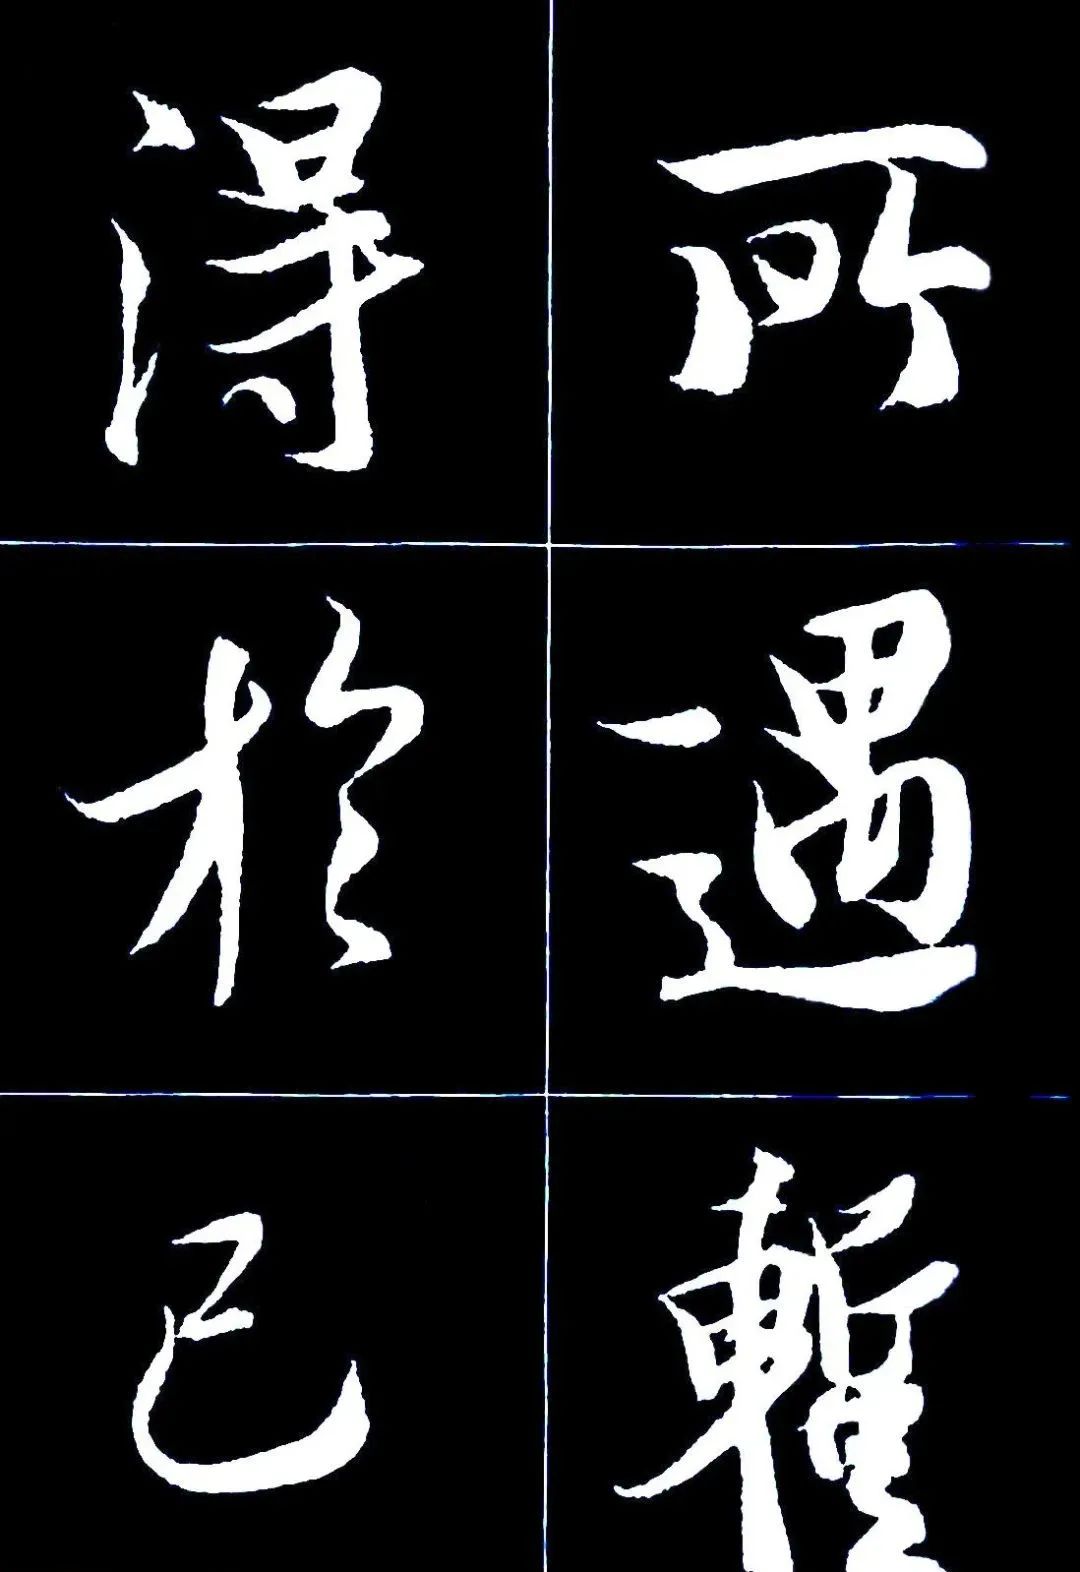 所遇暫
得於己